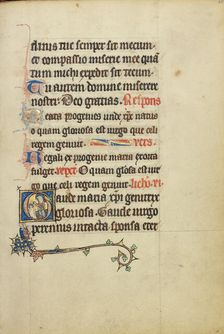 arius tue semper sit mecum
et compassio misera me qua
tum michi expedit sit tecum
Tu autem domine miserere
nostri Deo gratias. Respons
Beata progenies unde xpc natus
o quam gloriosa est uirgo que celi
regem genuit.
vers
Regali ex progenie maria exorta
fulget O quam glosa est uir
go que celi regem genuit.
Gaude maria xpi genitrix
gloriosa. Gaude uirgo
perennis intacta sponsa